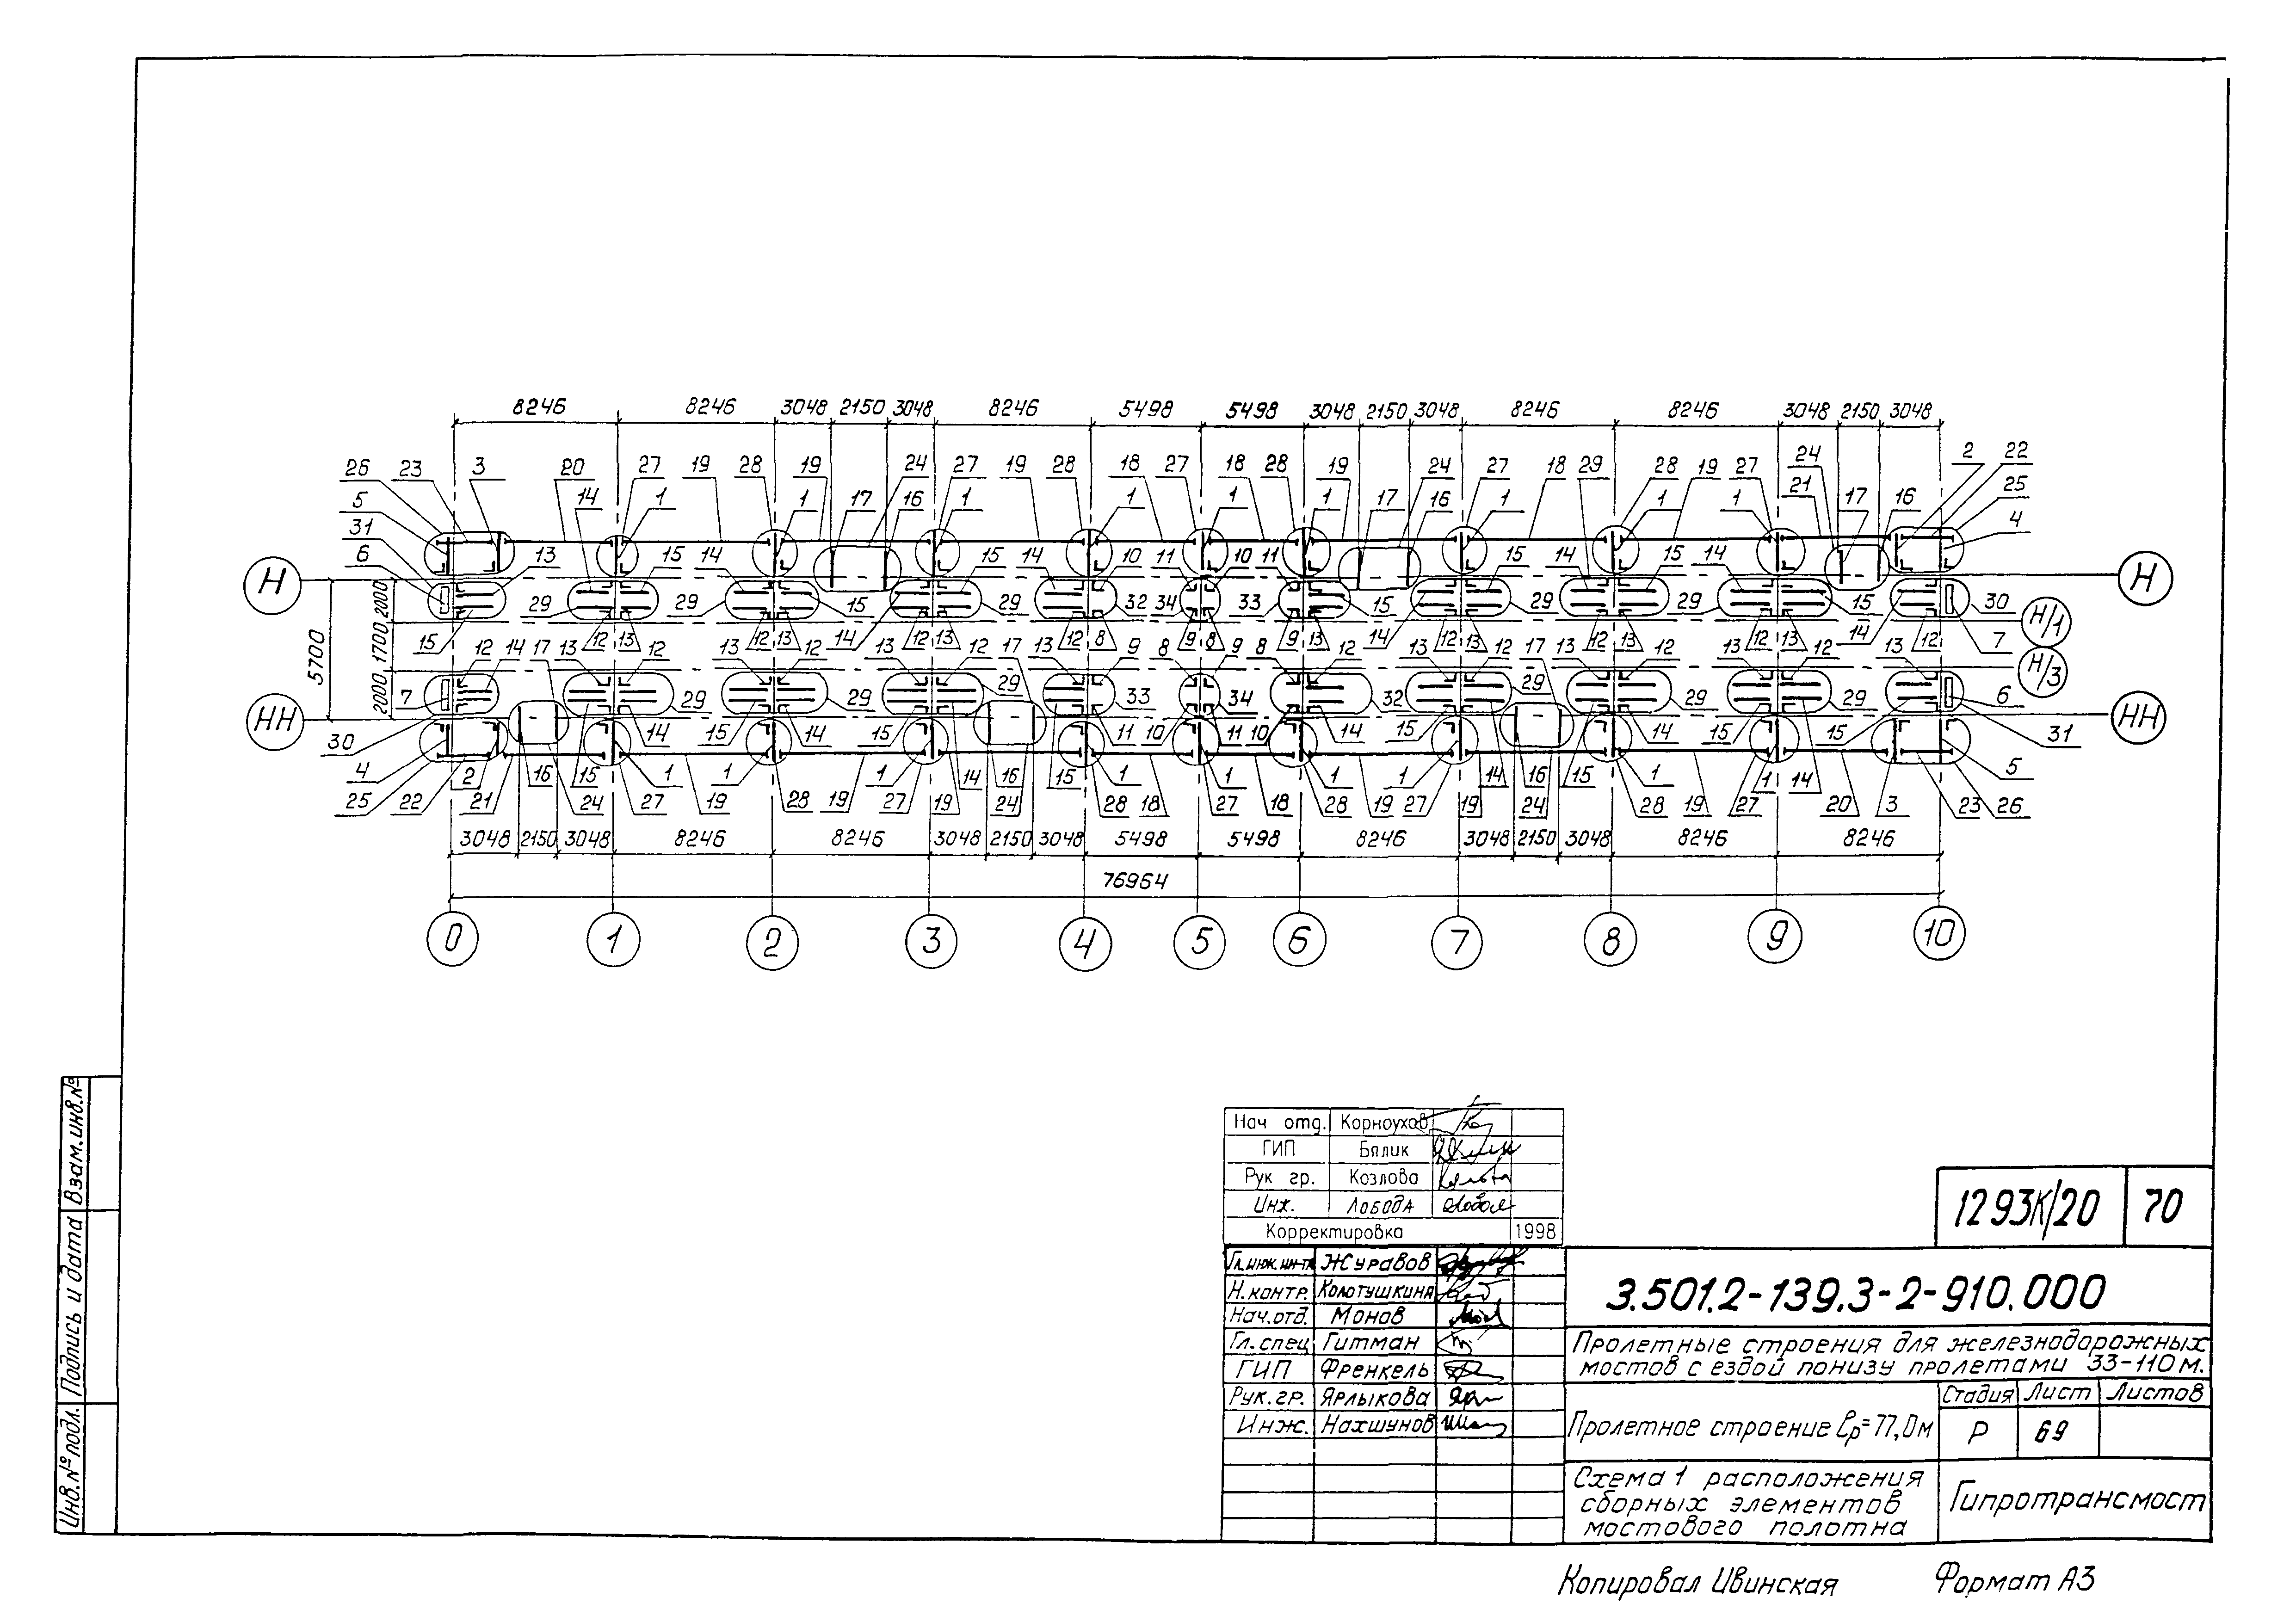 8246 8246 3048 2150 3048 8246 5498 5498 3048 2150 3048 8246 8246 3048 2150 3048
26 23 3 20 27 19 28 19 24 27 19 28 18 27 18 28 19 24 27 18 29 28 19 27 24 2 22
5 14 1 1 17 16 1 1 1 1 17 16 1 1 1 21 17 16 25
31 4
6 13 15 14 15 14 10 11 10 11 15 14 15 14
Н Н
29 29 15 29 32 34 33 15 29 29 15 30 Н/1
15 12 13 12 13 14 12 13 12 8 9 8 9 13 14 12 13 12 13 12 13 14 12 7
12 14 17 13 12 13 12 13 12 17 13 9 8 9 8 12 13 12 17 13 12 13 12 13
Н/3
7 29 29 29 33 34 32 29 29 29 6
НН НН
30 15 14 15 14 15 11 10 11 10 14 15 14 15 15 31
4 2 16 15 1 1 1 14 16 15 1 1 1 1 14 16 15 1 1 14 5
25 22 21 24 27 19 28 19 27 19 24 28 18 27 18 28 19 27 19 24 28 19 27 20 3 23 26
3048 2150 3048 8246 8246 3048 2150 3048 5498 5498 8246 3048 2150 3048 8246 8246
76964
2000 1700 2000
5700
0 1 2 3 4 5 6 7 8 9 10
Взам.инв.№
Подпись и дата
Инв.№подл.
Нач отд. Корноухов
ГИП Бялик
Рук гр. Козлова
Инж. Лобода
Корректировка 1998
1293К/20 70
Гл.инж.ин-та Журавов
Н.контр. Колотушкина
Нач.отд. Монов
Гл.спец Гитман
ГИП Френкель
Рук.гр. Ярлыкова
Инж. Нахшунов
3.501.2-139.3-2-910.000
Пролетные строения для железнодорожных
мостов с ездой понизу пролетами 33-110м.
Пролетное строение ℓр=77,0м
Стадия Лист Листов
Р 69
Схема 1 расположения
сборных элементов
мостового полотна
Гипротрансмост
Копировал Ивинская Формат А3